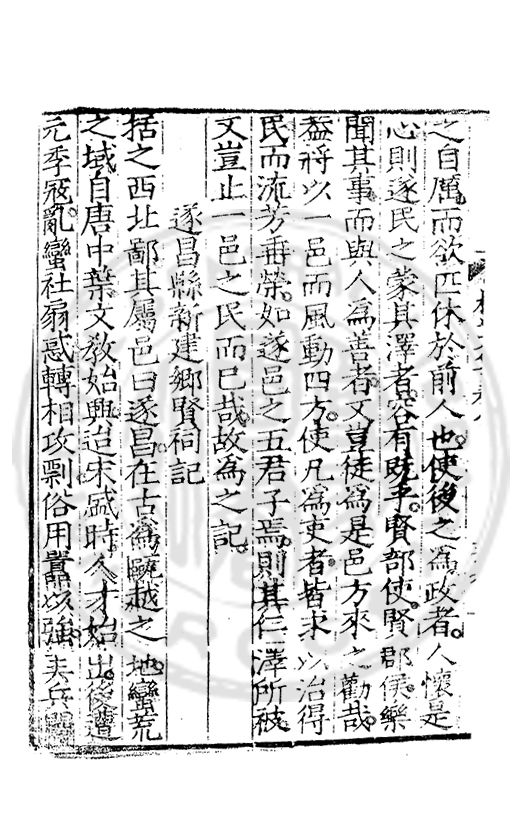 之自厲而欲匹休於前人也使後之為政者人懷是
心則遂民之蒙其澤者容有既乎賢部使賢郡侯樂
聞其事而與人為善者文豈徒為是邑方來之勸哉
蓋將以一邑而風動四方使凡為吏者皆求以治得
民而流芳垂榮如遂邑之五君子焉則其仁澤所被
文豈止一邑之民而已哉故為之記
遂昌縣新建鄉賢祠記
括之西北鄙其屬邑曰遂昌在古為甌越之地蠻荒
之域自唐中葉文教始興迨宋盛時人才始出後遭
元季寇亂蠻社扇惑轉相攻剽俗用囂以強夫兵